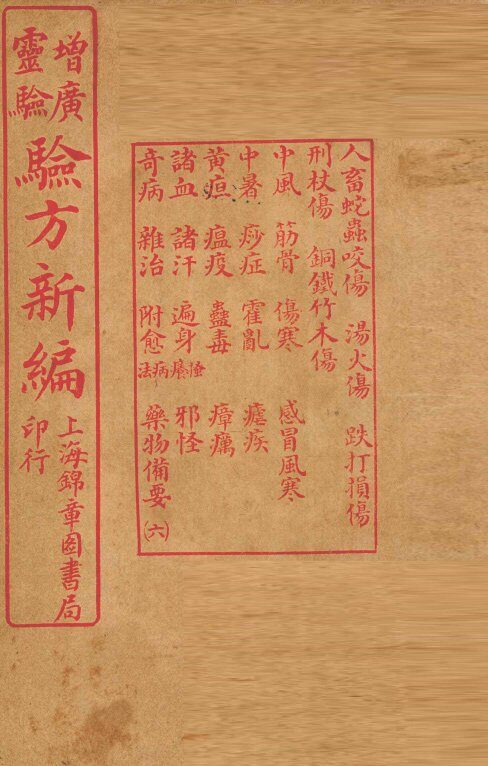 人畜蛇蟲咬傷 湯火傷 跌打損傷
刑杖傷 銅鐵竹木傷
中風 筋骨 傷寒 感冒風寒
中暑 痧症 霍亂 瘧疾
黃疸 瘟疫 蠱毒 瘴癘
諸血 諸汗 遍身癢 邪怪
奇病 雜治 附愈病法 藥物備要 (六)
增廣
靈驗
驗方新編
上海錦章圖書局
印行